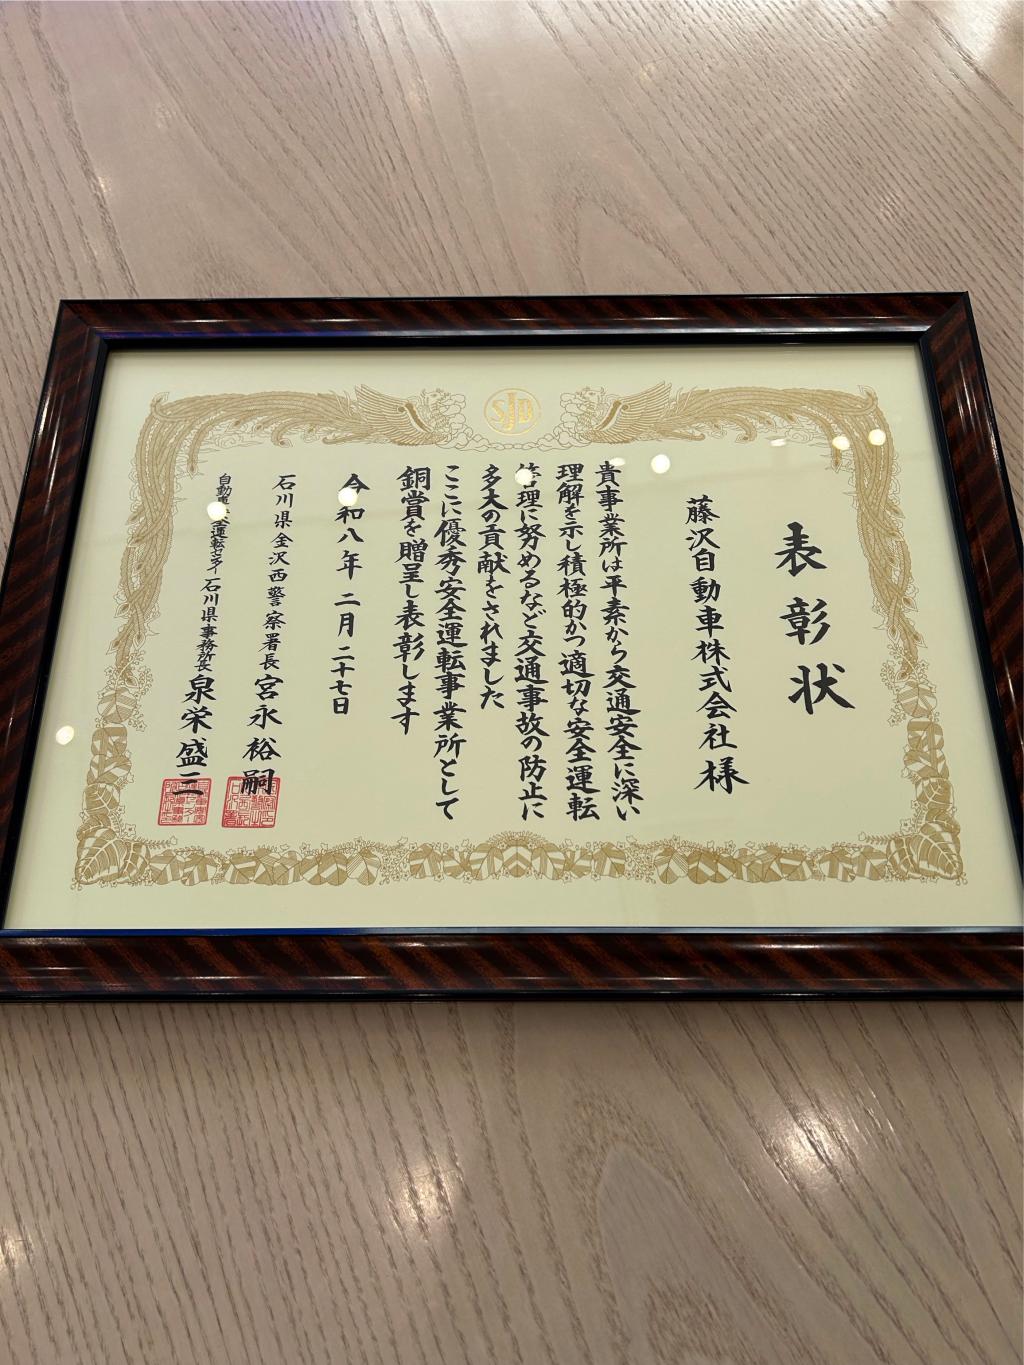 SJD
表彰状
藤沢自動車株式会社様
貴事業所は平素から交通安全に深い
理解を示し積極的かつ適切な安全運転
管理に努めるなど交通事故の防止に
多大の貢献をされました
ここに優秀安全運転事業所として
銅賞を贈呈し表彰します
令和八年二月二十七日
石川県金沢西警察署長 宮永裕嗣
自動車安全運転センター石川県事務所長 泉栄盛三